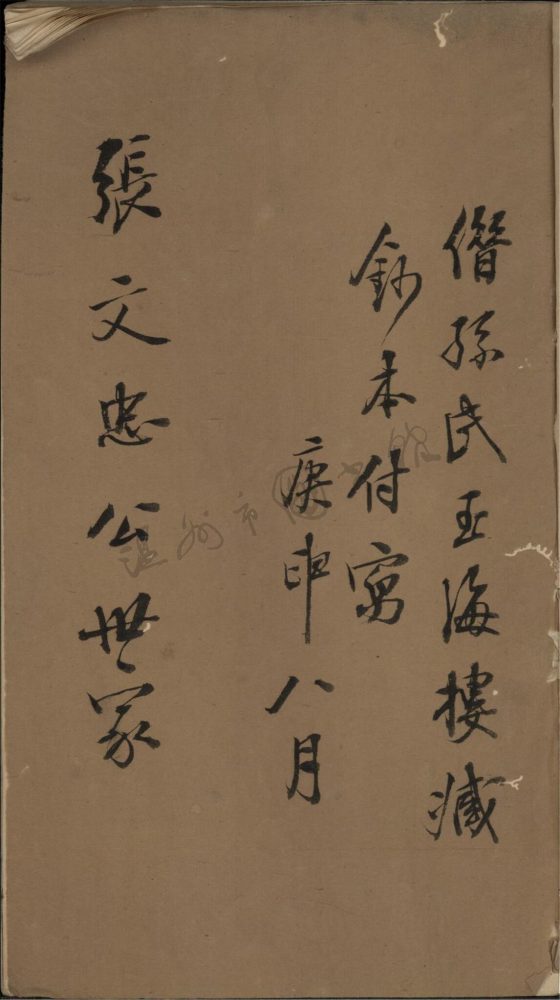 僭孫氏玉海樓臧
鈔本付寫
庚申八月
張文忠公世家
温州市圖書館